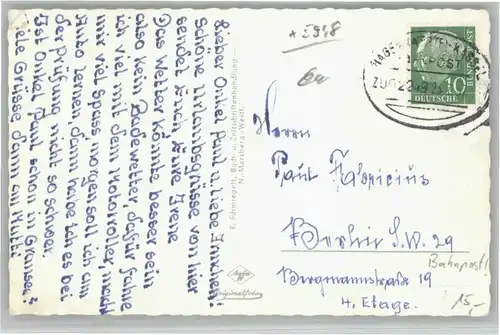 Lieber Onkel Paul u. liebe Ännchen!
Schöne Urlaubsgrüsse von hier
sendet Euch Eure Irene
Das Wetter könnte besser sein
also kein Badewetter dafür fahre
ich viel mit dem Motorroller, macht
mir viel Spass morgen soll ich am
Auto lernen, dann habe ich es bei
der Prüfung nicht so schwer.
Ist Onkel Paul schon in
Viele Grüsse dann an Mutti
R. Schmiegelt, Buch- u. Zeitschriftenhandlung
N.-Marsberg-Westf.
* 5948
6a
BAHNPOST
ZUG
10
DEUTSCHE
BUNDESPOST
Herrn
Paul Fabricius
Berlin S.W. 29
Bahnpost!
Bergmannstraße 19
4. Etage.
15,-
Agfa
Originalfoto